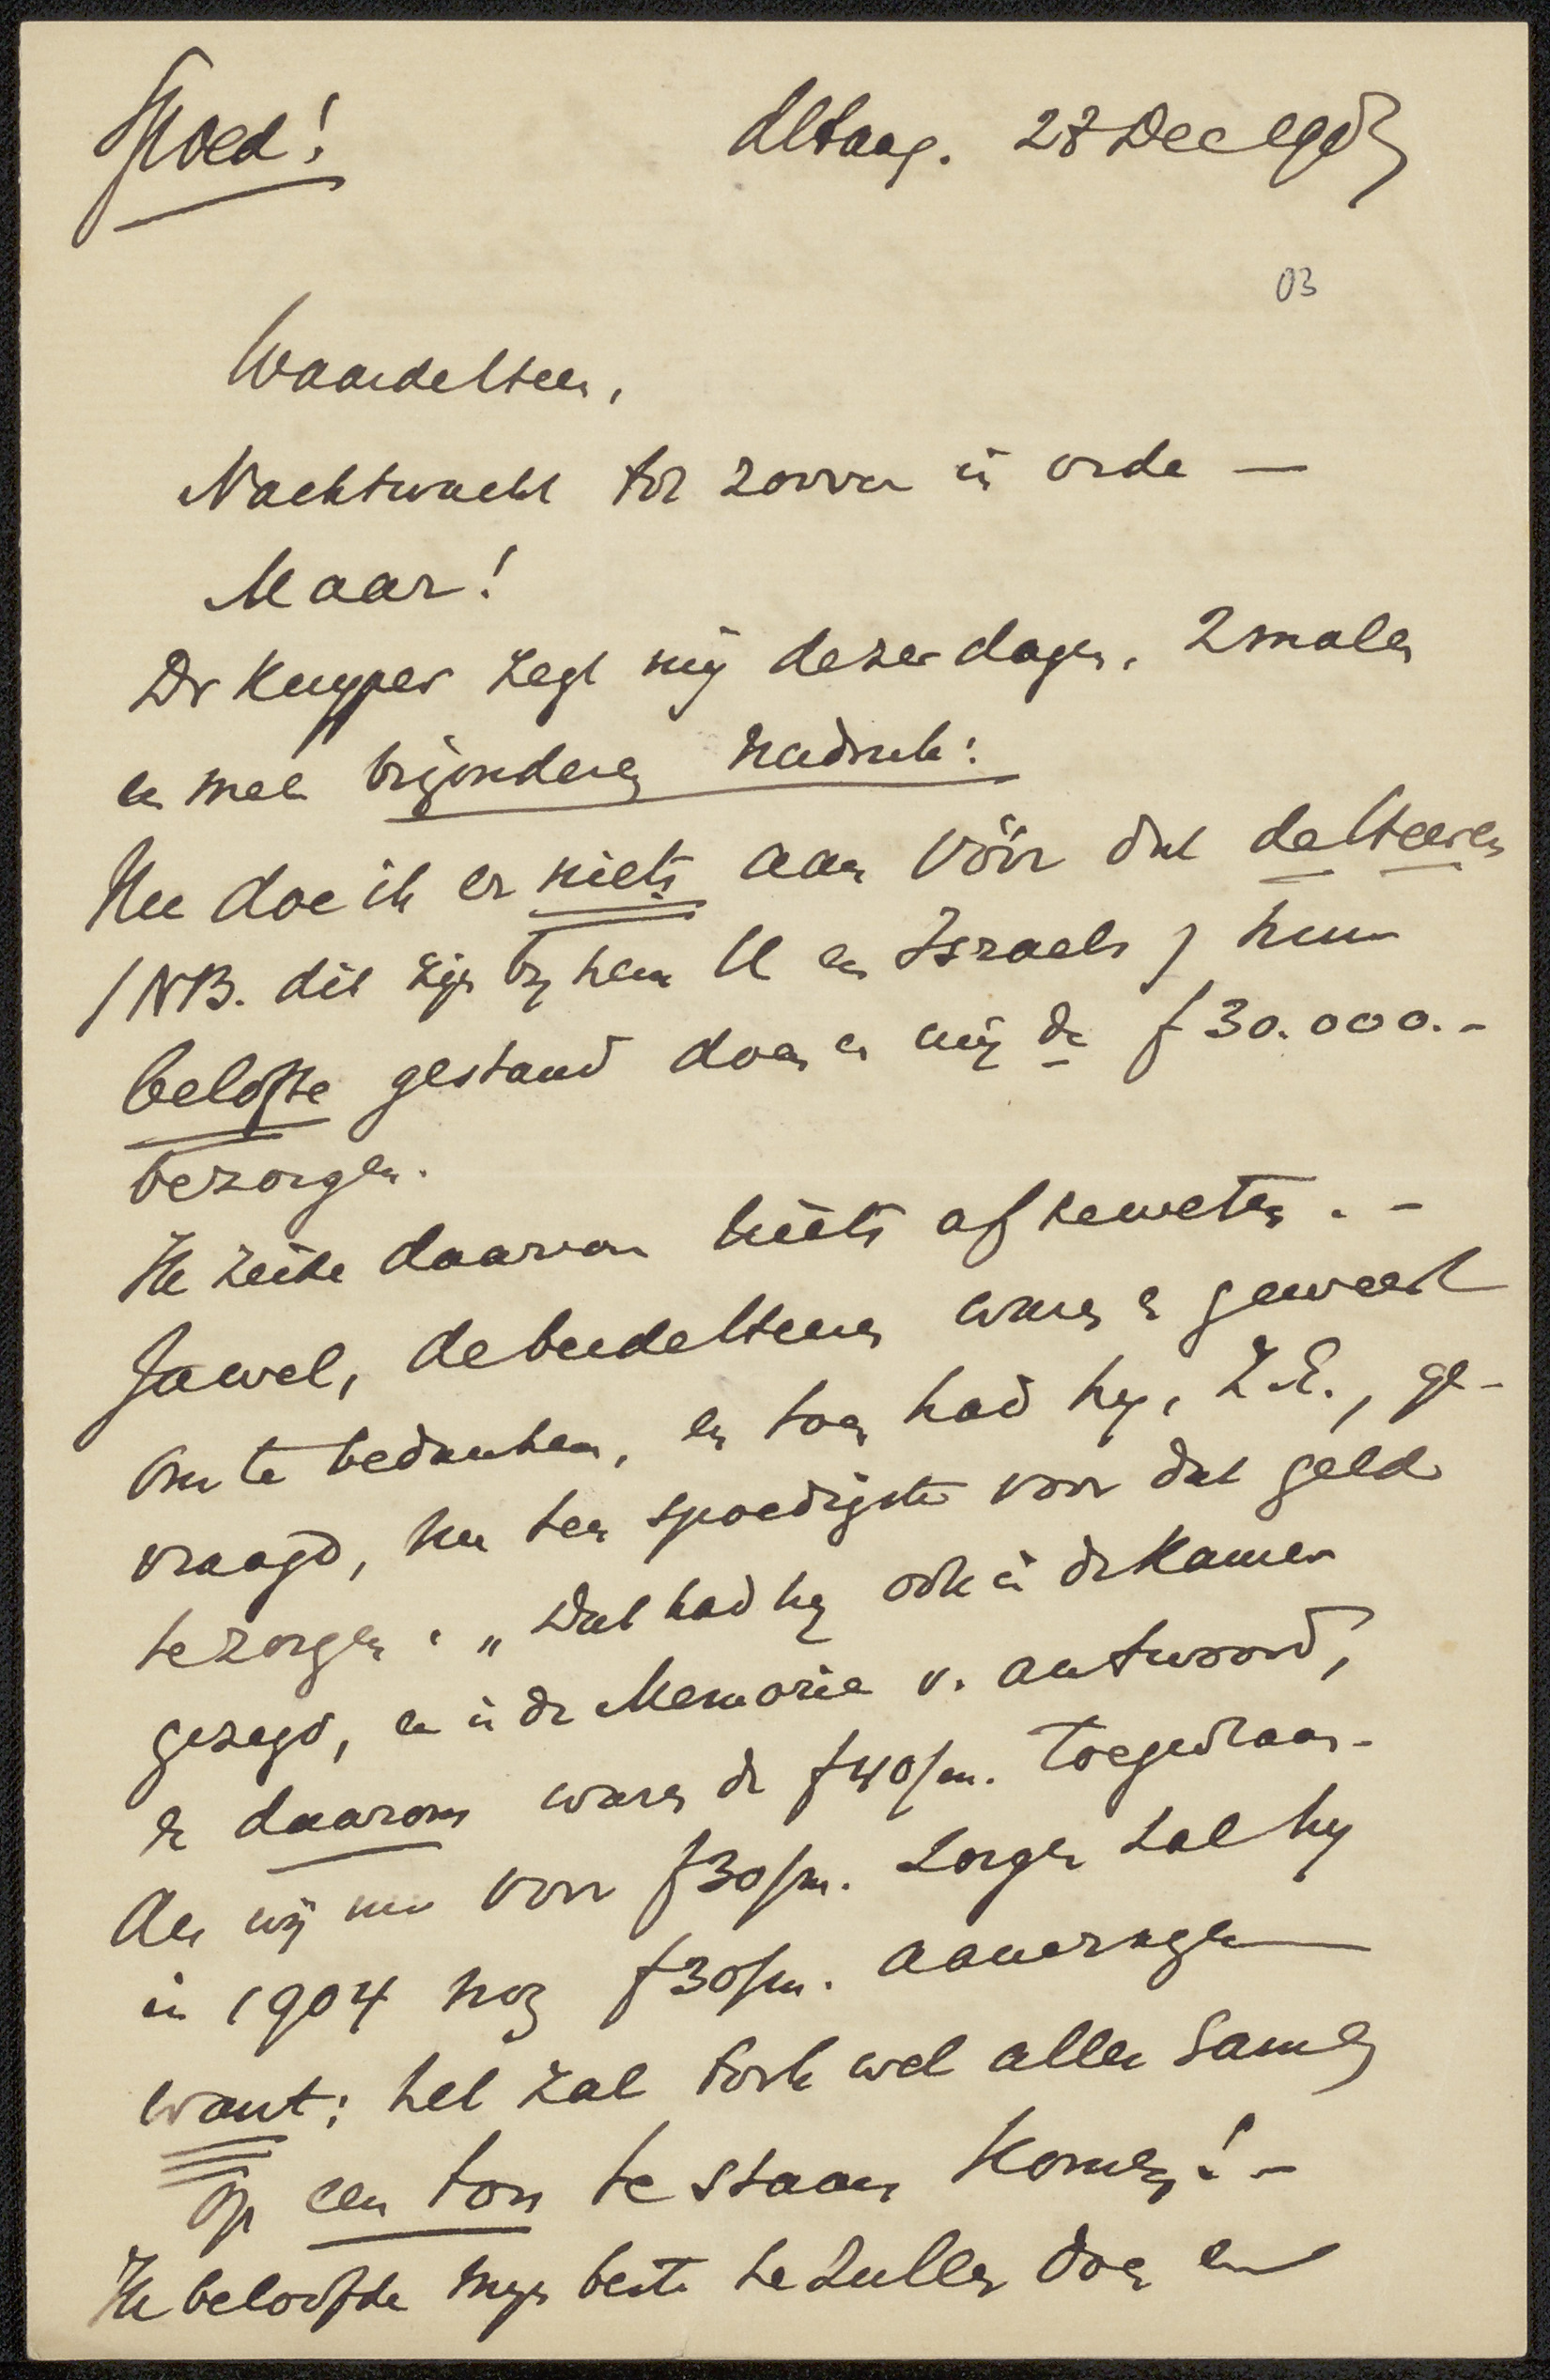 Spoed!
dHaag. 28 Dec 1903
03
Waarde Heer,
Nachtwacht tot zoover in orde —
Maar!
Dr Kuyper zegt mij dezer dagen, 2 malen
en met bijzonderen nadruk:
Nu doe ik er niets aan vóór dat de Heeren
(NB. dit zijn bij hem U en Israels) hun
belofte gestand doen en mij de f 30.000.-
bezorgen.
Ik zeide daarvan niets af te weten. -
Jawel, de beide Heeren waren er geweest
om te bedanken, en toen had hij, Z.E., ge-
vraagd, nu ten spoedigste voor dat geld
te zorgen. „Dat had hij ook in de Kamer
gezegd, en in de Memorie v. antwoord,
en daarom waren de f 40/m. toegestaan.
Als wij nu voor f 30/m. zorgen zal hij
in 1904 nog f 30/m. aanvragen
want: het zal toch wel alles samen
op een ton te staan komen! -
Ik beloofde mijn best te zullen doen en